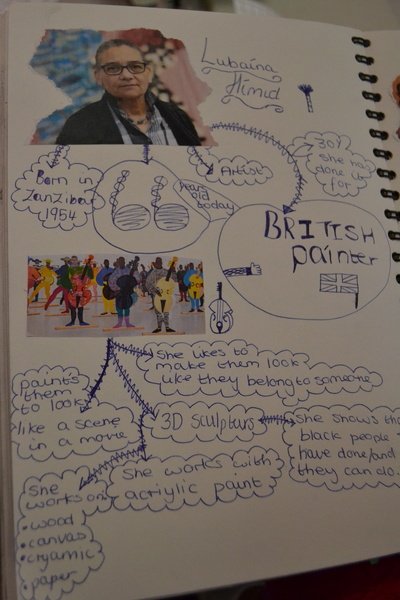 Lubaina
Himid
30%
she has
done it
for
Artist
Born in
Zanzibar
1954
66
years
old
today
BRITISH
painter
She likes to
make them look
like they belong to someone
paints
them
to look
like a scene
in a movie
3D sculpturs
She shows tha
black people
have done/and
they can do.
She works with
acriylic paint
She
works on
• wood
• canvas
• cryamic
• paper